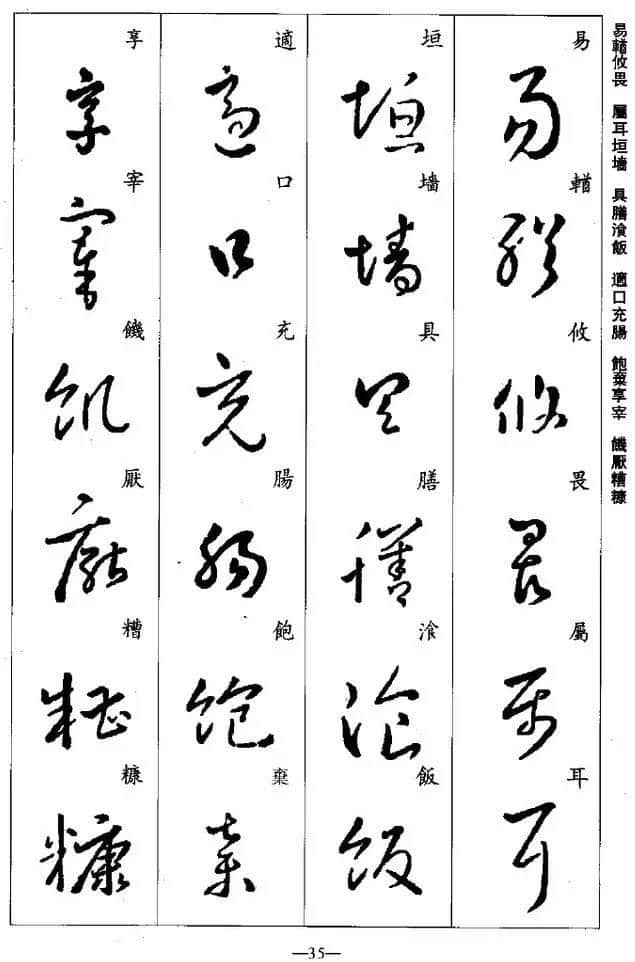 易輶攸畏 屬耳垣墻 具膳湌飯 適口充腸 飽棄享宰 饑厭糟糠
易輶攸畏屬耳
易輶攸畏屬耳
垣墻具膳湌飯
垣墻具膳湌飯
適口充腸飽棄
適口充腸飽棄
享宰饑厭糟糠
享宰飢厭糟糠
—35—